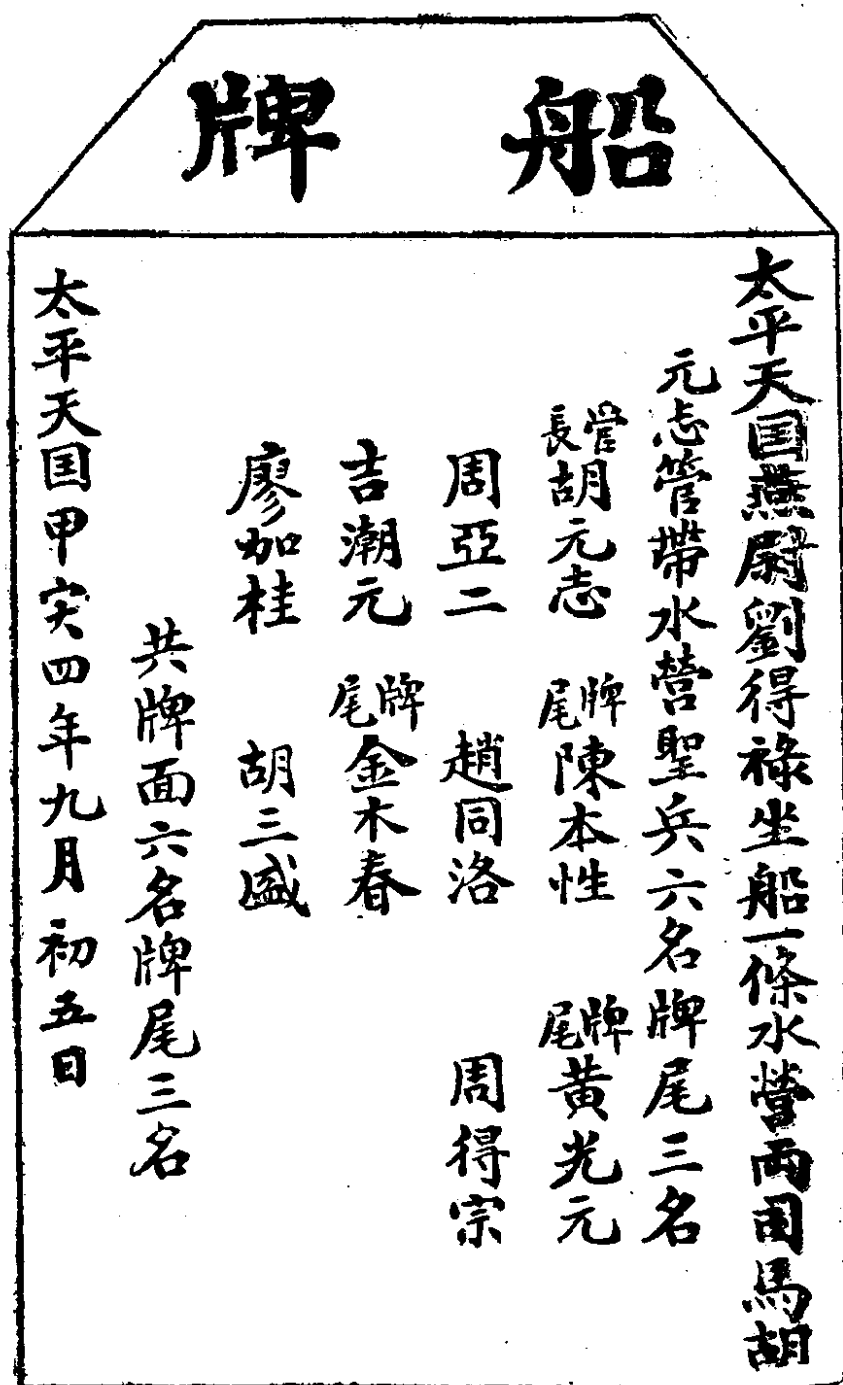 船牌
太平天囯燕尉劉得祿坐船一條水營兩司馬胡
元志管帶水營聖兵六名牌尾三名
管長胡元志 牌尾陳本性 牌尾黃光元
周亞二 趙同洛 周得宗
吉潮元 牌尾金木春
廖加桂 胡三盛
共牌面六名牌尾三名
太平天囯甲寅四年九月初五日